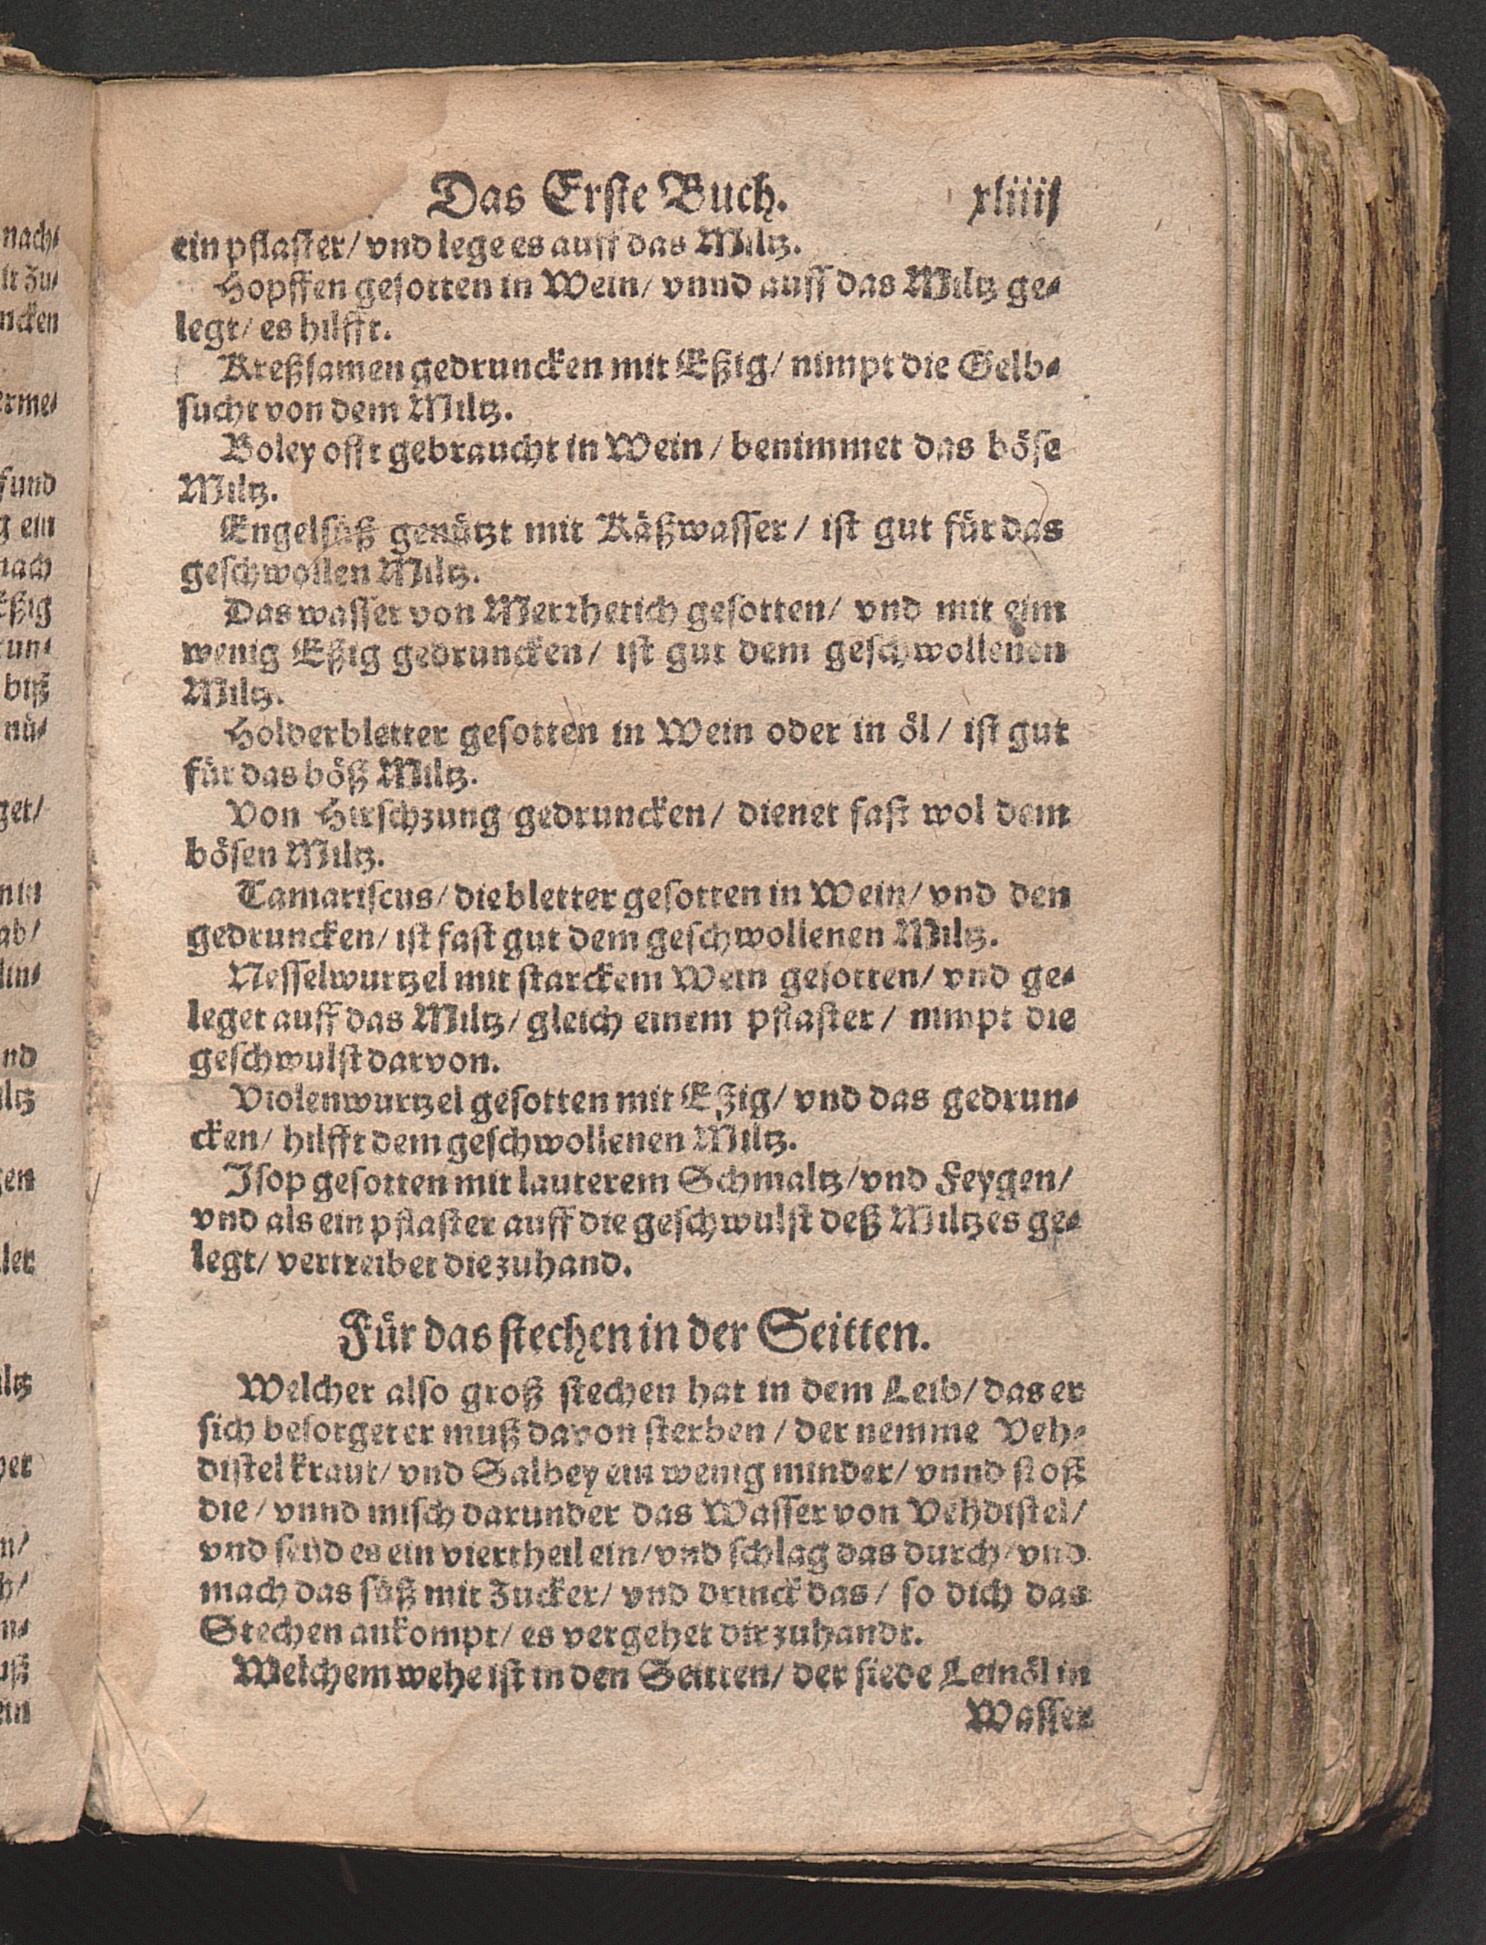 Das Erſte Buch. xliiij
ein pflaſter/ vnd lege es auff das Miltz.
Hopffen geſotten in Wein/ vnnd auff das Miltz ge⸗
legt/ es hilfft.
Kreßſamen gedruncken mit Eßig/ nimpt die Gelb⸗
ſucht von dem Miltz.
Boley offt gebraucht in Wein/ benimmet das böſe
Miltz.
Engelſüß genützt mit Käßwaſſer/ iſt gut für das
geſchwollen Miltz.
Das waſſer von Merrhetich geſotten/ vnd mit eim
wenig Eßig gedruncken/ iſt gut dem geſchwollenen
Miltz.
Holderbletter geſotten in Wein oder in öl/ iſt gut
für das böß Miltz.
Von Hirſchzung gedruncken/ dienet faſt wol dem
böſen Miltz.
Tamariſcus/ die bletter geſotten in Wein/ vnd den
gedruncken/ iſt faſt gut dem geſchwollenen Miltz.
Neſſelwurtzel mit ſtarckem Wein geſotten/ vnd ge⸗
leget auff das Miltz/ gleich einem pflaſter/ nimpt die
geſchwulſt darvon.
Violenwurtzel geſotten mit Eßig/ vnd das gedrun⸗
cken/ hilfft dem geſchwollenen Miltz.
Iſop geſotten mit lauterem Schmaltz/ vnd Feygen/
vnd als ein pflaſter auff die geſchwulſt deß Miltzes ge⸗
legt/ vertreibet die zuhand.
Für das ſtechen in der Seitten.
Welcher alſo groß ſtechen hat in dem Leib/ das er
ſich beſorget er muß davon ſterben/ der nemme Veh⸗
diſtel kraut/ vnd Salbey ein wenig minder/ vnnd ſtoß
die/ vnnd miſch darunder das Waſſer von Vehdiſtel/
vnd ſeüd es ein viertheil ein/ vnd ſchlag das durch/ vnd
mach das ſüß mit Zucker/ vnd drinck das/ ſo dich das
Stechen ankompt/ es vergehet dir zuhandt.
Welchem wehe iſt in den Seitten/ der ſiede Leinöl in
Waſſer